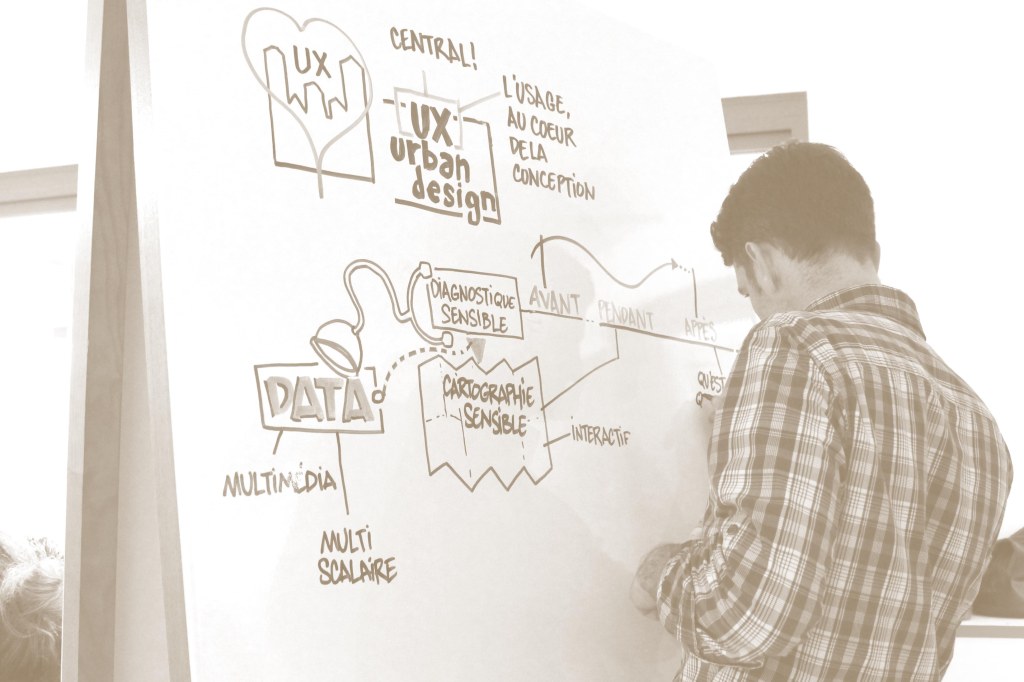 CENTRAL!
UX
UX
urban
design
L'USAGE,
AU COEUR
DE LA
CONCEPTION
DIAGNOSTIQUE
SENSIBLE
AVANT
PENDANT
APRÈS
QU'EST
DATA
CARTOGRAPHIE
SENSIBLE
INTERACTIF
MULTIMÉDIA
MULTI
SCALAIRE